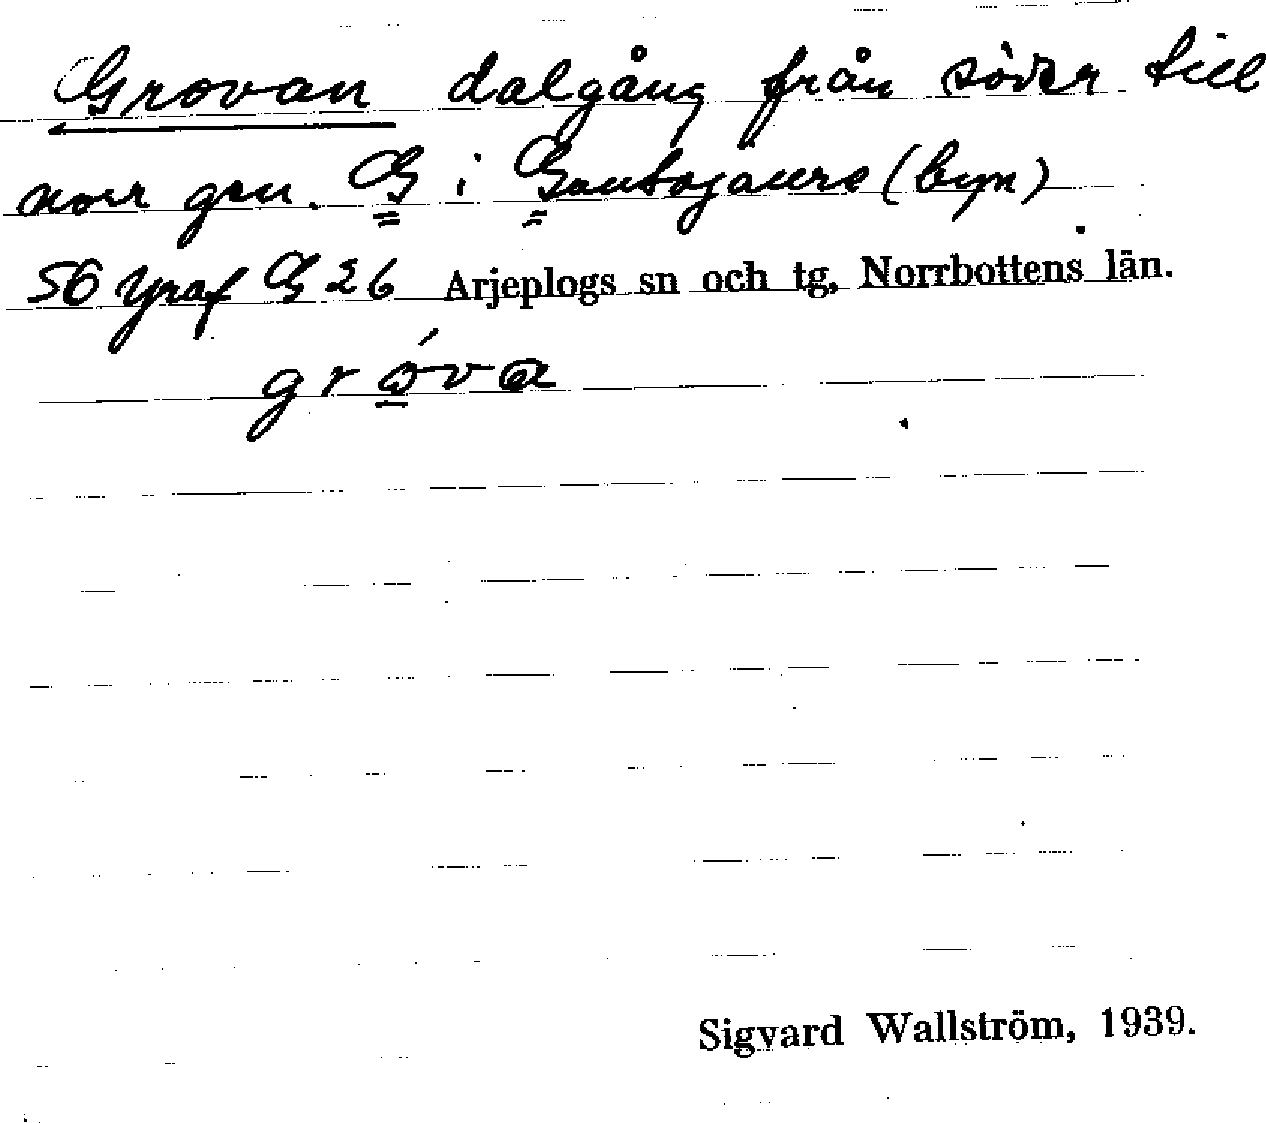 Grovan dalgång från söder till
norr gen. G i Gautojaure (byn)
56 Ygraf G 26 Arjeplogs sn och tg, Norrbottens län.
gróva
Sigvard Wallström, 1939.